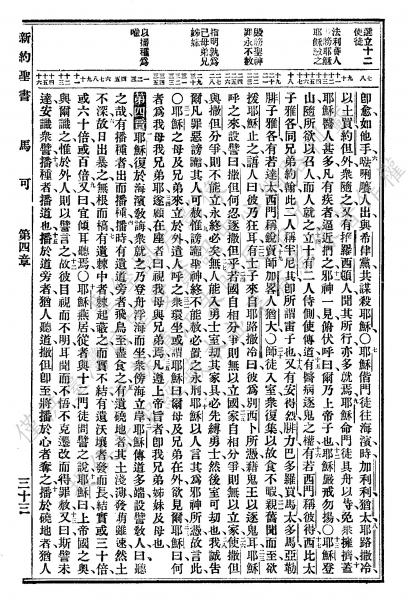 選立十二
使徒
法利賽人
毀謗聖神
罪永不赦
指明孰為
己母兄弟
姊妹
以播種為
喻
卽愈如他手唎賽人出與希律黨共謀殺耶穌○耶穌偕門徒往海濱時加利利猶太耶路撒冷
以土買約但外衆隨之又有推羅西頓人聞其所行亦多就焉耶穌命門徒具舟以待免衆擁擠蓋
耶穌醫人甚多凡有疾者逼近捫之邪神一見俯伏呼曰爾乃上帝子也耶穌嚴戒勿揚○耶穌登
山隨所欲以召人而人就之立十有二人侍側使傳道有醫病逐鬼之權有若西門稱彼得西比太
子雅各同兄弟約翰此二人稱半尼其卽所謂雷子也又有安得烈腓力巴多羅買馬太多馬亞勒
腓子雅各有若達太西門稱銳賣師加畧人猶大○師徒入室衆復集以故食不暇親舊聞而至欲
援耶穌止之語人曰彼乃狂耳士子來自耶路撒冷曰彼為別西卜所憑藉鬼王以逐鬼耳耶穌
呼之來設譬曰撒但何忍逐撒但乎若國自相分爭則無以立國家自相分爭則無以立家使撒但
與撒但分爭則不能立永終必矣無人能入勇士室刼其家具必先縛勇士然後室可刼也我誠告
爾凡罪惡謗讟其人可赦惟謗讟聖神終不能赦必置之永刑耶穌以人言其為邪神所憑故言此
○耶穌母及兄弟來立於外遣人呼之衆環坐或謂耶穌曰爾母及兄弟在外欲見爾耶穌曰何
者為我母我兄弟耶遂顧在座者曰視我母與兄弟焉凡遵上帝旨者卽我兄弟姊妹及母也
第四章耶穌復於海濱敎誨衆就之故登舟浮海而坐衆傍海立耶穌傳道多端設譬敎人曰聽
之哉有播種者出而播種播時有遺道旁者飛鳥至盡食之有遺磽地者其土淺薄發萌雖速然土
不深故日出暴之無根而槁有遺棘中者棘起蔽之而實不結有遺沃壤者發而長結實或三十倍
或六十倍或百倍又曰宜傾耳聽焉○耶穌燕居從者與十二門徒問譬之說耶穌曰上帝國之奧
與爾識之惟於外人則以譬言之故彼目視而不明耳聞而不悟不克遷改而得罪赦又曰斯譬未
達安識衆譬播種者播道也播於道旁者猶人聽道撒但卽至將播於心者奪之播於磽地者猶人
新約聖書 馬可 第四章 三十三